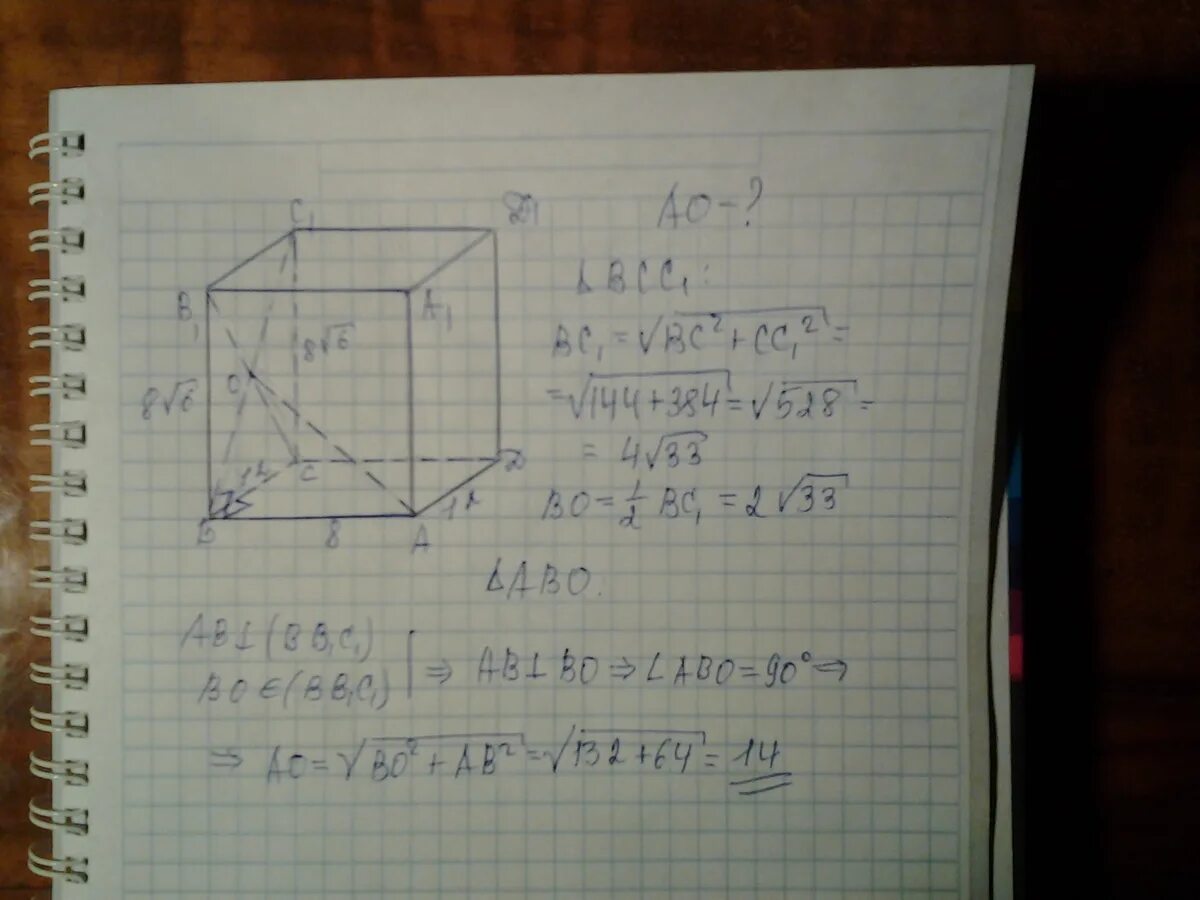 AO-?
C₁
D₁
B₁
A₁
8√6
8√6
O
12
C
D
12
B
8
A
ΔBCC₁:
BC₁ = √BC² + CC₁² =
= √144 + 384 = √528 =
= 4√33
BO = 1/2 BC₁ = 2√33
ΔABO.
AB⊥(BB₁C₁)
BO∈(BB₁C₁)
⇒ AB⊥BO ⇒ ∠ABO = 90° ⇒
⇒ AO = √BO² + AB² = √132 + 64 = 14